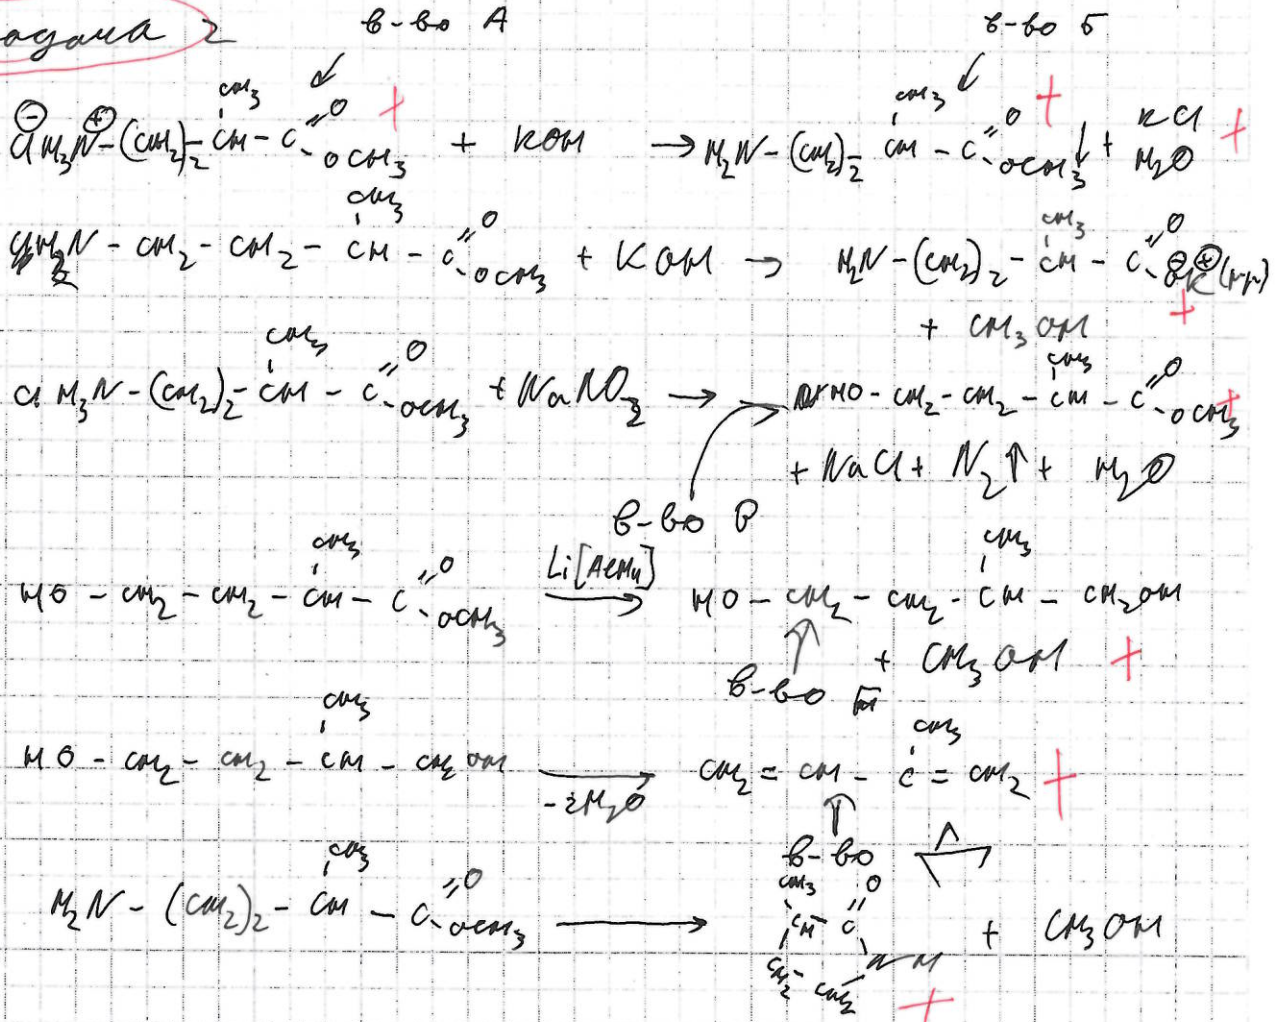 задача 2
в-во А
в-во Б
Cl⊖ H₃N⊕-(CH₂)₂-CH(CH₃)-C(=O)-OCH₃ + KOH → H₂N-(CH₂)₂-CH(CH₃)-C(=O)-OCH₃↓ + KCl + H₂O
H₂N-CH₂-CH₂-CH(CH₃)-C(=O)-OCH₃ + KOH → H₂N-(CH₂)₂-CH(CH₃)-C(=O)-O⊖K⊕
+ CH₃OH
Cl H₃N-(CH₂)₂-CH(CH₃)-C(=O)-OCH₃ + NaNO₂ → HO-CH₂-CH₂-CH(CH₃)-C(=O)-OCH₃
+ NaCl + N₂↑ + H₂O
в-во В
HO-CH₂-CH₂-CH(CH₃)-C(=O)-OCH₃ Li[AlH₄] → HO-CH₂-CH₂-CH(CH₃)-CH₂OH
+ CH₃OH
в-во Г
HO-CH₂-CH₂-CH(CH₃)-CH₂OH → -2H₂O CH₂=CH-C(CH₃)=CH₂
в-во Д
H₂N-(CH₂)₂-CH(CH₃)-C(=O)-OCH₃ → CH₃ CH C=O NH CH₂-CH₂ + CH₃OH